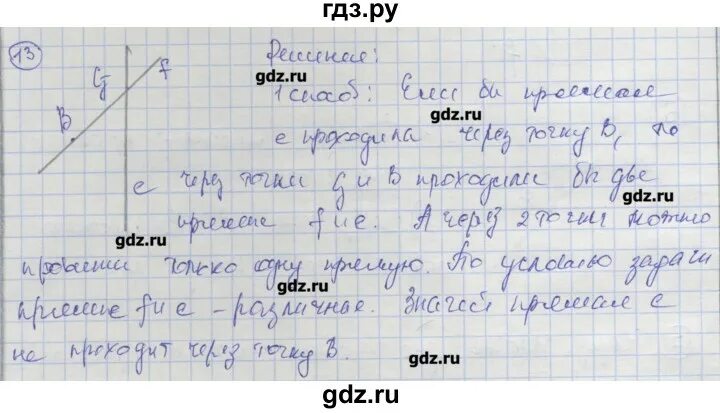 гдз.ру
13
G f Решение:
gdz.ru
1 способ: Если бы прямая
B
gdz.ru
e проходила через точку B, то
e через точки G и B проходили бы две
gdz.ru
прямые f и e. А через 2 точки можно
gdz.ru
провести только одну прямую. По условию задачи
gdz.ru
прямые f и e – различные. Значит прямая e
не проходит через точку B.
gdz.ru
gdz.ru